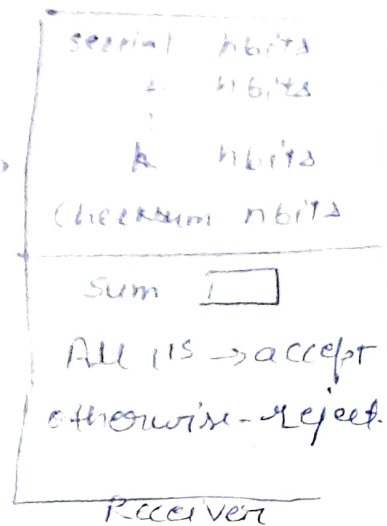 section 1 nbits
2 nbits
⋮
k nbits
Checksum nbits
Sum
All 1's → accept
otherwise - reject.
Receiver